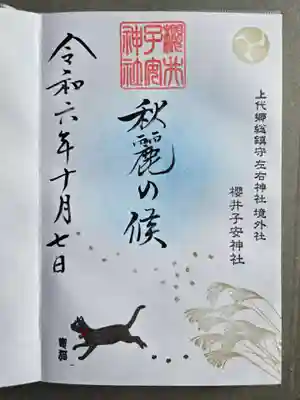 上代郷総鎮守左右神社 境外社
櫻井子安神社
櫻井
子安
神社
秋麗の候
令和六年十月七日